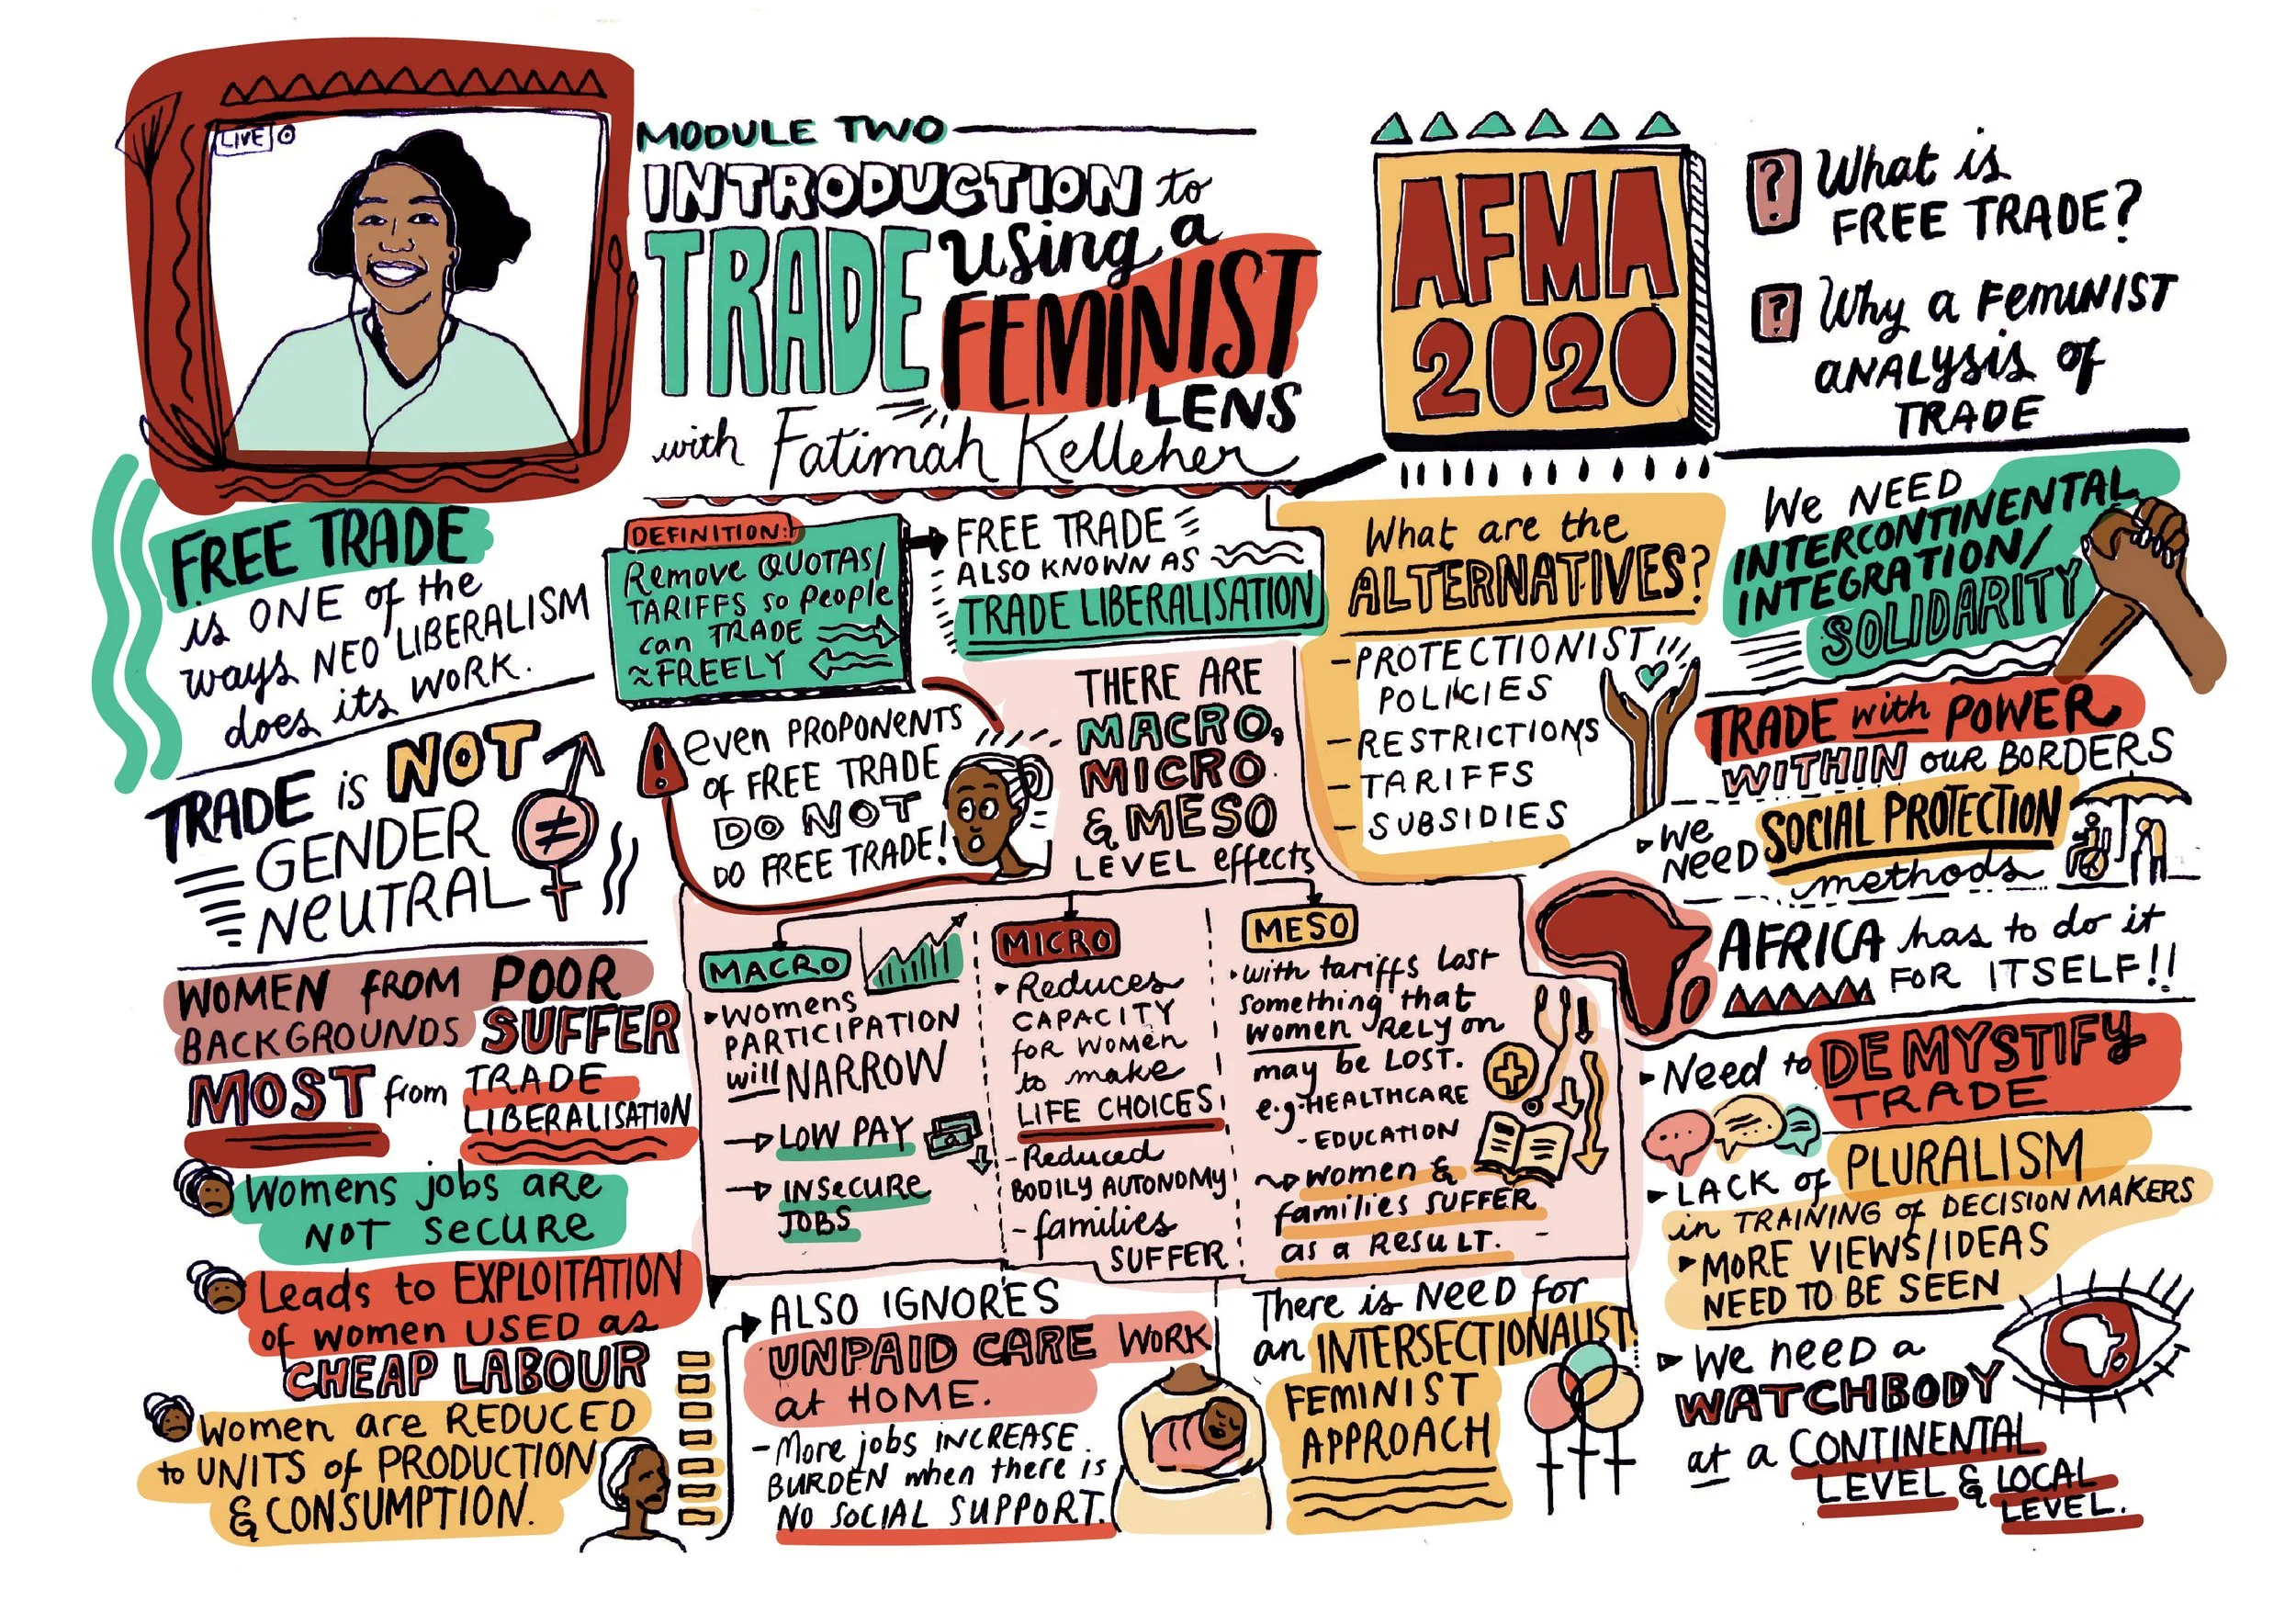 LIVE
MODULE TWO
INTRODUCTION to
TRADE using a
FEMINIST
LENS
with Fatimah Kelleher
AFMA
2020
? What is
FREE TRADE?
? Why a FEMINIST
ANALYSIS of
TRADE
FREE TRADE
is ONE of the
ways NEO LIBERALISM
does its WORK.
TRADE is NOT
GENDER
NEUTRAL
≠
WOMEN FROM POOR
BACKGROUNDS SUFFER
MOST from TRADE
LIBERALISATION
Womens jobs ARE
NOT SECURE
Leads to EXPLOITATION
of women USED as
CHEAP LABOUR
Women are REDUCED
to UNITS of PRODUCTION
& CONSUMPTION.
DEFINITION:
Remove QUOTAS/
TARIFFS so people
can TRADE
FREELY
FREE TRADE
ALSO KNOWN AS
TRADE LIBERALISATION
! even PROPONENTS
of FREE TRADE
DO NOT
DO FREE TRADE!
THERE ARE
MACRO,
MICRO
& MESO
LEVEL effects
MACRO
Womens
PARTICIPATION
will NARROW
LOW PAY
INSECURE
JOBS
MICRO
Reduces
CAPACITY
for WOMEN
to make
LIFE CHOICES
- Reduced
BODILY AUTONOMY
- families
SUFFER
MESO
with tariffs lost
something that
women RELY on
may be LOST.
e.g. - HEALTHCARE
- EDUCATION
women &
families SUFFER
as a RESULT.
ALSO IGNORES
UNPAID CARE WORK
at HOME.
- More jobs INCREASE
BURDEN when there is
NO SOCIAL SUPPORT.
There is NEED for
an INTERSECTIONALIST
FEMINIST
APPROACH
What are the
ALTERNATIVES?
- PROTECTIONIST
POLICIES
- RESTRICTIONS
- TARIFFS
- SUBSIDIES
We NEED
INTERCONTINENTAL
INTEGRATION/
SOLIDARITY
TRADE with POWER
WITHIN our BORDERS
We
NEED SOCIAL PROTECTION
methods
AFRICA has to do it
FOR ITSELF!!
Need to DEMYSTIFY
TRADE
LACK of PLURALISM
in TRAINING of DECISION MAKERS
MORE VIEWS/IDEAS
NEED TO BE SEEN
We need a
WATCHBODY
at a CONTINENTAL
LEVEL & LOCAL
LEVEL.